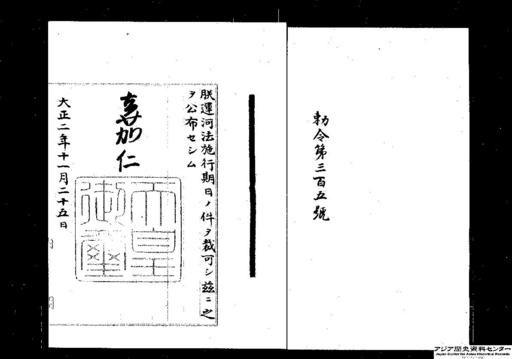 勅令第三百五號
朕運河法施行期日ノ件ヲ裁可シ茲ニ之
ヲ公布セシム
嘉仁
天皇
御璽
大正二年十一月二十五日
アジア歴史資料センター
Japan Center for Asian Historical Records